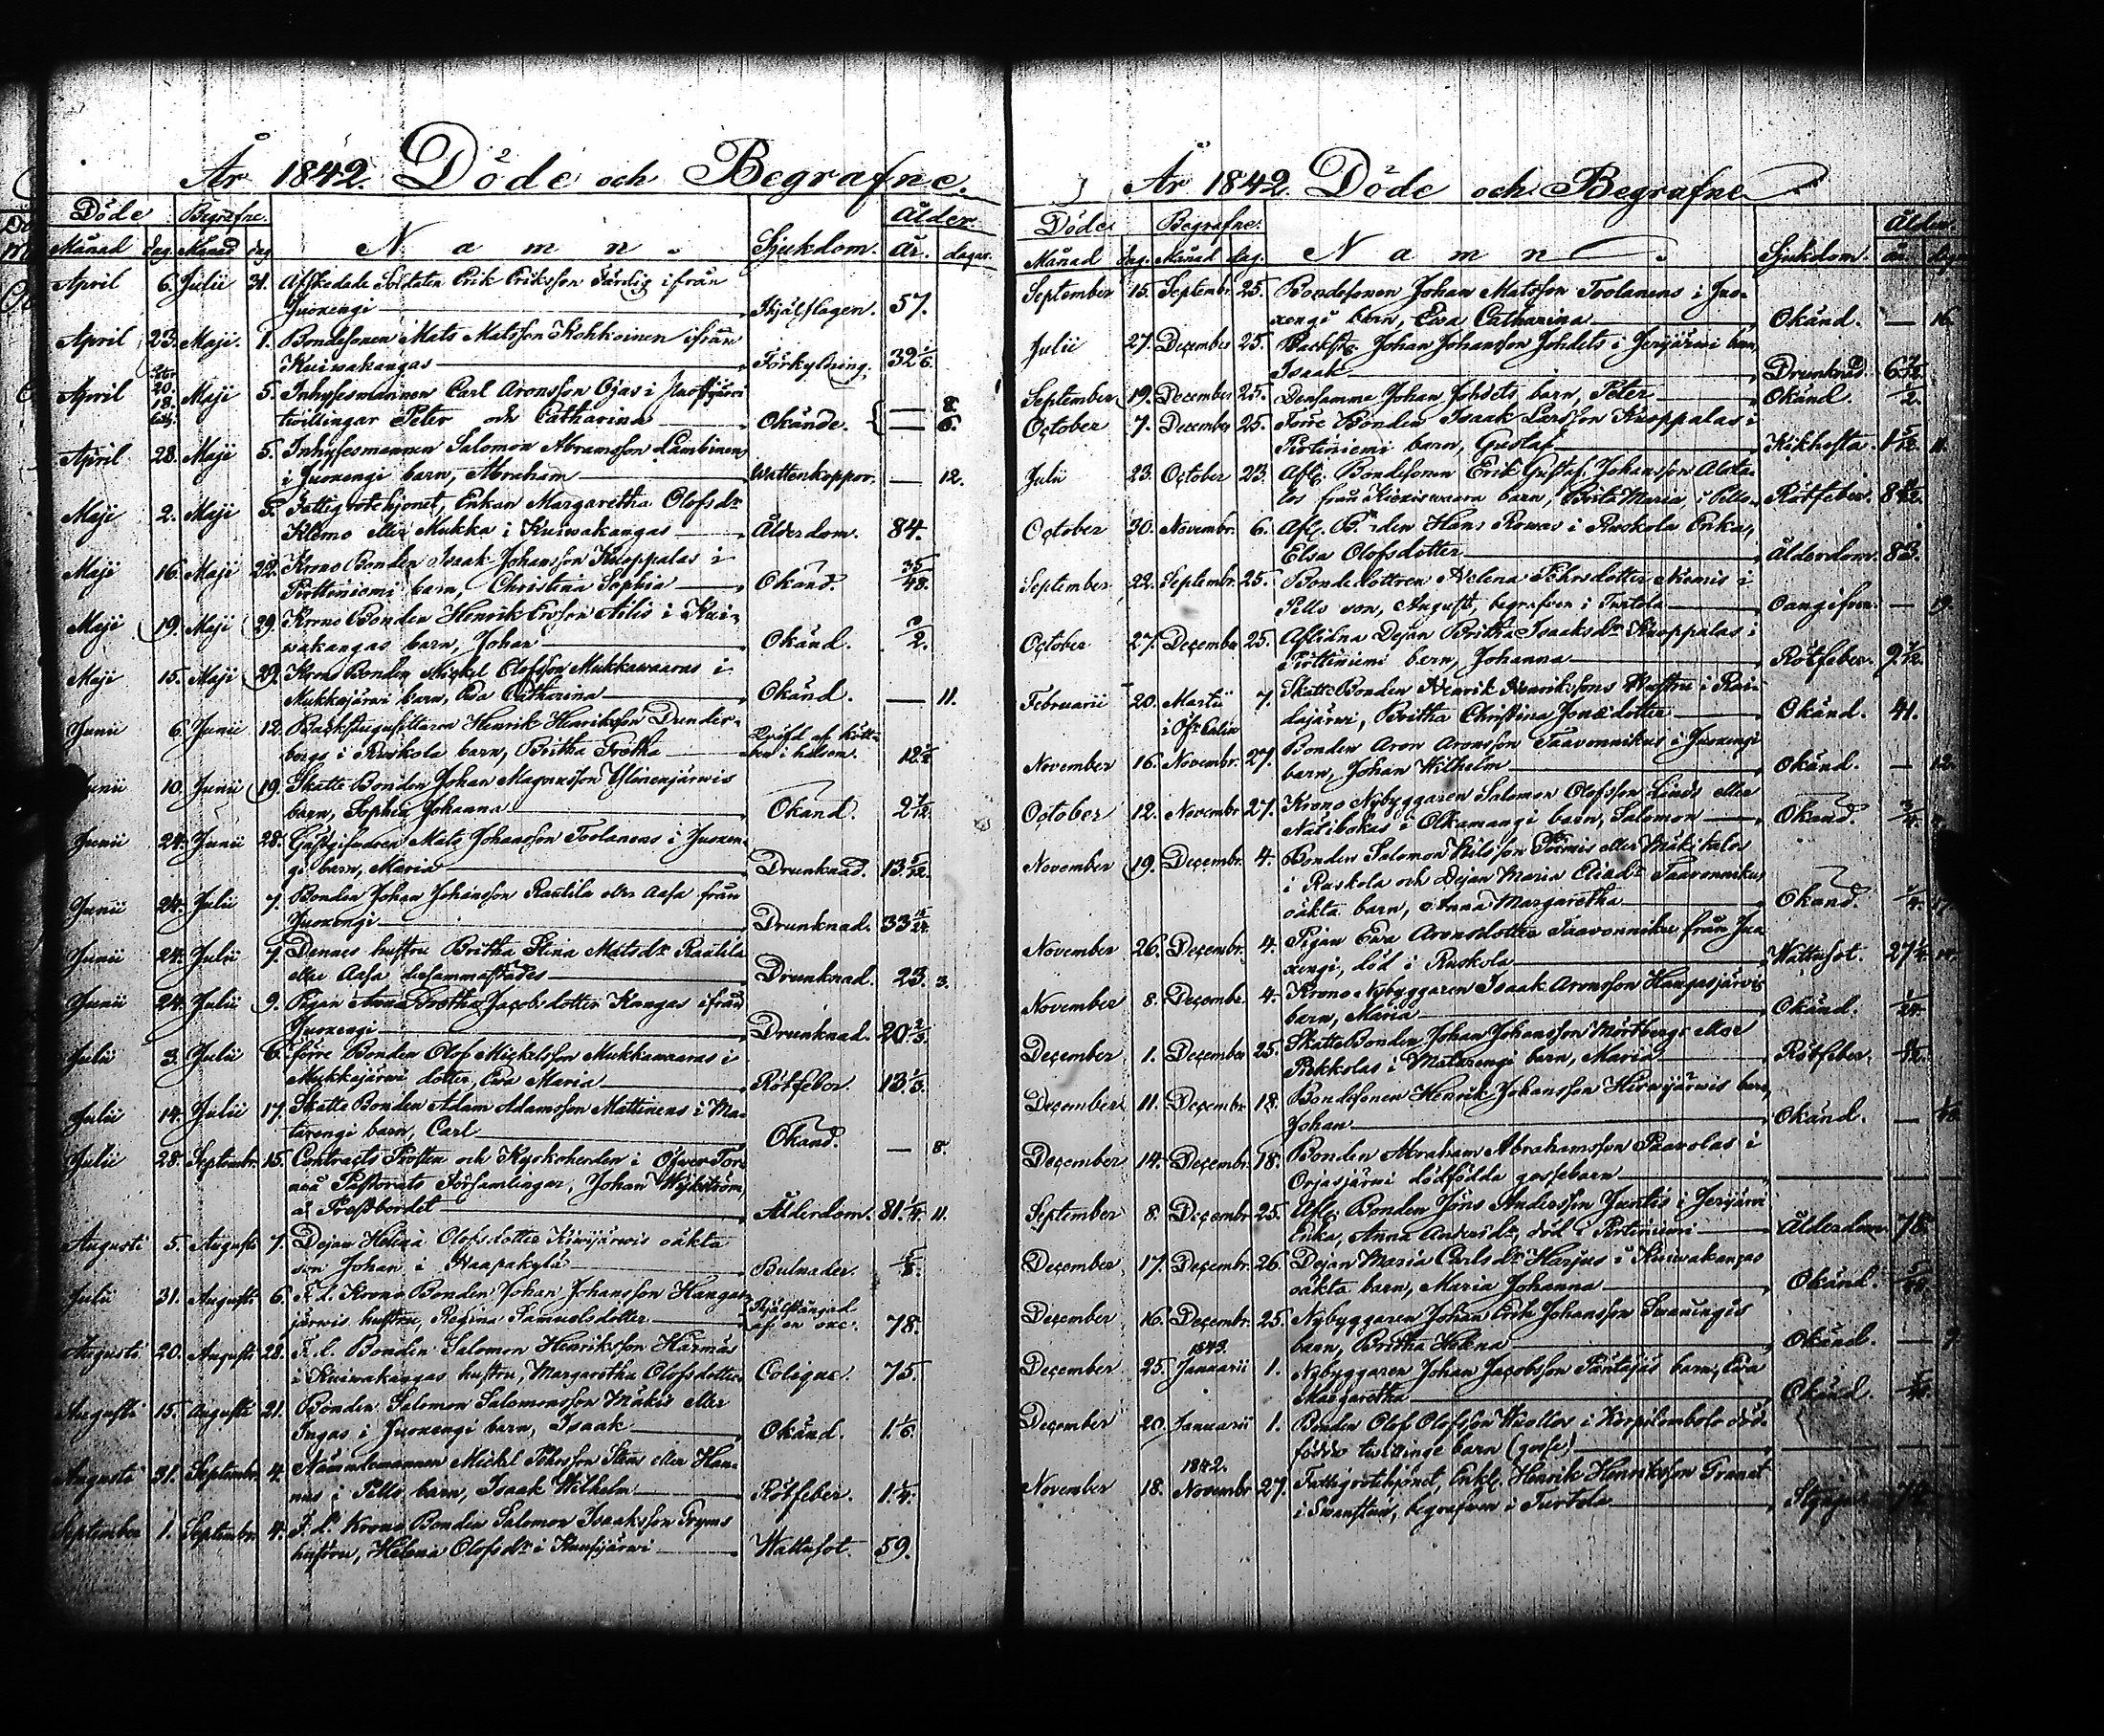 År 1842. Döde och Begrafne.
Döde Begrafne. Ålder.
Månad dag. Månad dag N a m n. Sjukdom. år. dagar.
April 6. Julii 31. Afskedade Soldaten Erik Eriksson Färdig ifrån
Juoxengi Ihjälslagen. 57.
April 23. Maji. 1. Bondesonen Mats Matsson Kohkoinen ifrån
Kuiwakangas Förkylning. 32 1/6.
April 20. 18. Maji 5. Inhysesmannen Carl Aronsson Ojas i
twillingar Peter och Catharina Okände. { — 8. — 6.
April 28. Maji 5. Inhysesmannen Salomon Abramsson Lambinen
i Juoxengi barn, Abraham Wattenkoppor. — 12.
Maji 2. Maji 5. Fattigrotehjonet, Enkan Margaretha Olofsdr
Klemo eller Mukka i Kuiwakangas Ålderdom. 84.
Maji 16. Maji 22. Krono Bonden Isaak Johansson Knoppalas i
Pirttiniemi barn, Christina Sophia Okänd. 35/48.
Maji 19. Maji 29. Krono Bonden Henrik Ersson Ailis i Kui-
wakangas barn, Johan Okänd.
Maji 15. Maji 29. Krono Bonden Mickel Olofsson Mukkawaaras i
Mukkajärwi barn, Ewa Catharina Okänd. — 11.
Junii 6. Junii 12. Backstugusittaren Henrik Henriksson Drunder-
bergs i Ruskola barn, Britha Gretha
Junii 10. Junii 19. Skatte Bonden Johan Magnusson Ylinenjärwis
barn, Sophia Johanna Okänd.
Junii 24. Junii 28. Gästgifvaren Mats Johansson Toolanens i Juoxen-
gi barn, Maria Drunknad.
Junii 24. Julii 7. Bonden Johan Johansson Rautila eller Aasa från
Juoxengi Drunknad.
Junii 24. Julii 7. Dennes hustru Britha Stina Matsdr Rautila
eller Aasa dersammastädes Drunknad. 23. 3.
Junii 24. Julii 9. Pigan Anna Gretha Jacobsdotter Kangas ifrån
Juoxengi Drunknad.
Julii 3. Julii 6. förre Bonden Olof Mickelsson Mukkawaaras i
Mukkajärwi dotter, Ewa Maria Rötfeber. 13 1/3.
Julii 14. Julii 17. Skatte Bonden Adam Adamsson Mattinens i Ma-
tarengi barn, Carl Okänd. — 8.
Julii 28. Septembr. 15. Contracts Prosten och Kyrkoherden i Öfwer Tor-
neå Pastorats Församlingar, Johan Wikström,
å Prestbordet Ålderdom. 81 1/4. 11.
Augusti 5. Augusti 7. Dejan Helena Olofsdotter Kiwijärwis oäkta
son Johan i Haapakylä Bulnader.
Julii 31. Augusti 6. F. d. Krono Bonden Johan Johansson Kangas-
järwis hustru, Regina Samuelsdotter Ihjälstångad af en oxe. 78.
Augusti 20. Augusti 28. F. d. Bonden Salomon Henriksson Harmäs
i Kuiwakangas hustru, Margaretha Olofsdotter Colique. 75.
Augusti 15. Augusti 21. Bonden Salomon Salomonsson Mäkis eller
Ingas i Juoxengi barn, Isaak Okänd. 1 1/6.
Augusti 31. Septembr. 4. Nämndemannen Mickel Pehrsson Stens eller Han-
nus i Pello barn, Isaak Wilhelm Rötfeber. 1 1/4.
September 1. Septembr. 4. F. d. Krono Bonden Salomon Isaaksson Gryms
hustru, Helena Olofsdr i Kuusijärwi Wattusot. 59.
År 1842. Döde och Begrafne
Döde. Begrafne. Ålder.
Månad dag. Månad dag. N a m n. Sjukdom. år. dagar
September 15. Septembr. 25. Bondesonen Johan Matsson Toolanens i Juo-
xengi barn, Ewa Catharina Okänd. — 16.
Julii 27. December 25. Johan Johansson Johdets i Jerijärwi barn,
Isaak Drunknad.
September 19. December 25. Densamme Johan Johdets barn, Peter Okänd.
October 7. December 25. Förre Bonden Isaak Larsson Knoppalas i
Pirttiniemi barn, Gustaf Kikhosta. 11.
Julii 23. October 23. Afl. Bondesonen Erik Gustaf Johansson
från barn, Brita Maria, i Pello Rötfeber.
October 30. Novembr. 6. Afl. Bonden Hans Rowas i Ruskola Enka,
Elsa Olofsdotter Ålderdom. 83.
September 22. Septembr. 25. Bondedottren Helena Pehrsdotter Niemis i
Pello son, August, begrafven i Turtola Oangifven. — 19.
October 27. December 25. Aflidna Dejan Britha Isaaksdr Knoppalas i
Pirttiniemi barn, Johanna Rötfeber.
Februarii 20. Martii 7. Skatte Bonden Henrik Henrikssons Hustru i Rai-
dajärwi, Britha Christina Jonsdotter Okänd. 41.
November 16. Novembr. 27. Bonden Aron Aronsson Taavonnikus i Juoxengi
barn, Johan Wilhelm Okänd. — 12.
October 12. Novembr 27. Krono Nybyggaren Salomon Olofsson Linds eller
i Olkamangi barn, Salomon Okänd.
November 19. Decembr. 4. Bonden Salomon Nilsson Niemis eller Mäkitalos
i Ruskola och Dejan Maria Taavonnikus
oäkta barn, Anna Margaretha Okänd.
November 26. Decembr. 4. Pigan Ewa Aronsdotter Taavonniku från Juo-
xengi, död i Ruskola Wattusot.
November 8. December 4. Krono Nybyggaren Isaak Aronsson Kangasjärwis
barn, Maria Okänd. 1/24.
December 1. December 25. Skatte Bonden Johan Johansson Mörtbergs eller
Pekkolas i Matarengi barn, Maria Rötfeber.
December 11. Decembr. 18. Bondesonen Henrik Johansson Hirwijärwis barn,
Johan Okänd.
December 14. Decembr. 18. Bonden Abraham Abrahamsson Paavolas i
Orjasjärwi dödfödda gossebarn
September 8. Decembr 25. Afl. Bonden Jöns Andersson Juntis i Jerijärwi
Enka, Anna Andersdr, död i Pirttiniemi Ålderdom. 78.
December 17. Decembr. 26. Dejan Maria Carlsdr Harjus i Kuiwakangas
oäkta barn, Maria Johanna Okänd.
December 16. Decembr. 25. Nybyggaren Johan Erik Johansson Swanings
barn, Britha Helena Okänd. — 9.
1843.
December 25. Januarii 1. Nybyggaren Johan Jacobsson Pantajas barn, Ewa
Margaretha Okänd.
December 20. Januarii 1. Bonden Olof Olofsson Wuollos i Korpilombolo död-
födde twillinge barn (gosse)
1842.
November 18. Novembr 27. Fattigrotehjonet, Enkl. Henrik Henriksson Granat
i Swanstein, begrafven i Turtola